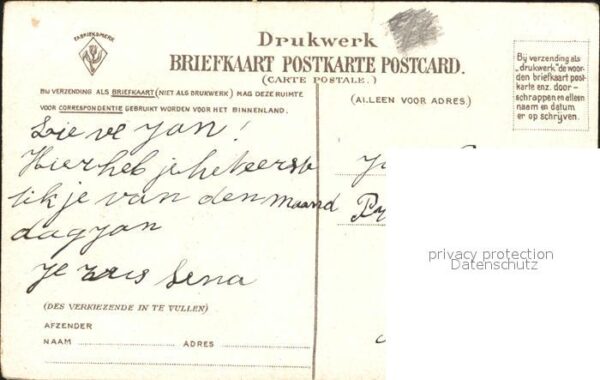 FABRIEKSMERK
Drukwerk
BRIEFKAART POSTKARTE POSTCARD.
(CARTE POSTALE.)
BIJ VERZENDING ALS BRIEFKAART (NIET ALS DRUKWERK) MAG DEZE RUIMTE
VOOR CORRESPONDENTIE GEBRUIKT WORDEN VOOR HET BINNENLAND.
(ALLEEN VOOR ADRES.)
Bij verzending als
„drukwerk" de woor-
den briefkaart post-
karte enz. door-
schrappen en alleen
naam en datum
er op schrijven.
Lieve Jan!
Hier heb je het eerste
tikje van den maand
dag Jan
je zus Lena
(DES VERKIEZENDE IN TE VULLEN)
AFZENDER
NAAM ADRES
privacy protection
Datenschutz